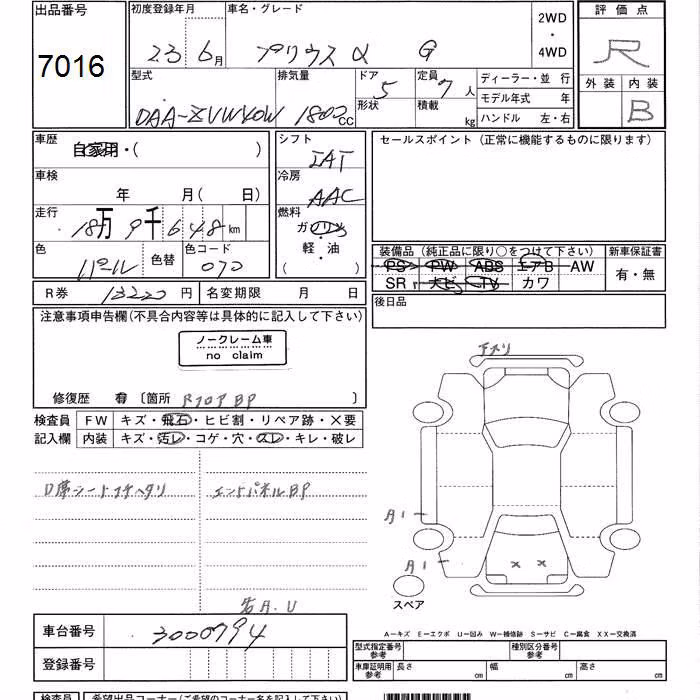 出品番号
7016
初度登録年月
23 6月
車名・グレード
プリウス α G
2WD
・
4WD
評価点
R
外装 内装
B
型式
DAA-ZVW40W
排気量
1800 CC
ドア
5
形状
定員
7人
積載
kg
ディーラー・並行
モデル年式 年
ハンドル 左・右
車歴
自家用・( )
車検
年 月( 日)
走行
18万9千648km
色
パール
色替
色コード
070
シフト
IAT
冷房
AAC
燃料
ガソリン
軽・油
( )
セールスポイント (正常に機能するものに限ります)
装備品 (純正品に限り○をつけて下さい)
PS PW ABS エアB AW
SR ナビ TV カワ
新車保証書
有・無
R券 13220円
名変期限 月 日
後日品
注意事項申告欄(不具合内容等は具体的に記入して下さい)
ノークレーム車
no claim
修復歴 有 〔箇所 RフロアBP 〕
検査員
記入欄
FW キズ・飛石・ヒビ割・リペア跡・×要
内装 キズ・汚レ・コゲ・穴・スレ・キレ・破レ
D席シートコゲヘタリ
エンドパネルBP
右A.U
下スリ
A1
A1
× ×
スペア
車台番号
3000794
登録番号
A-キズ E-エクボ U-凹み W-補修跡 S-サビ C-腐食 XX-交換済
型式指定番号
参考
種別区分番号
参考
車庫証明用
参考
長さ cm
幅 cm
高さ cm
検査員
希望出品コーナー(ご希望のコーナー名を記入して下さい)